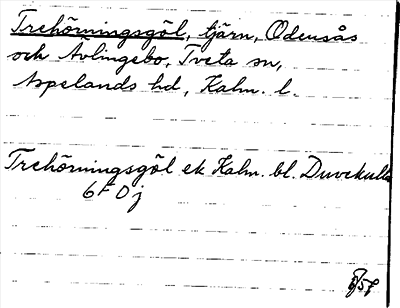 Trehörningsgöl, tjärn, Odensås
och Avlingebo, Tveta sn,
Aspelands hd, Kalm. l.
Trehörningsgöl ek Kalm. bl. Duvekulla
6f 0j